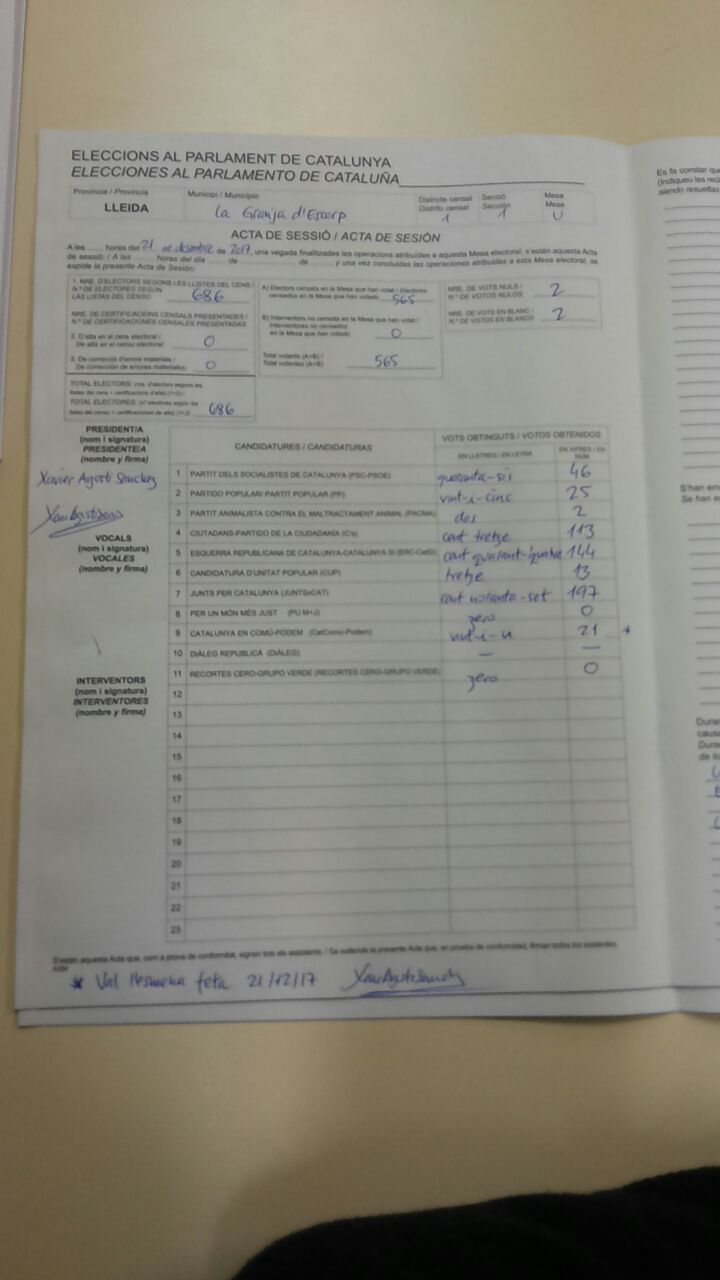 ELECCIONS AL PARLAMENT DE CATALUNYA
ELECCIONES AL PARLAMENTO DE CATALUÑA
Província / Provincia
LLEIDA
Municipi / Municipio
La Granja d'Escarp
Districte censal
Distrito censal
1
Secció
Sección
1
Mesa
Mesa
U
ACTA DE SESSIÓ / ACTA DE SESIÓN
A les ...... hores del 21 de desembre de 2017, una vegada finalitzades les operacions atribuïdes a aquesta Mesa electoral, s'estén aquesta Acta
de sessió: / A las ...... horas del día ...... de ...... de ......, y una vez concluidas las operaciones atribuidas a esta Mesa electoral, se
expide la presente Acta de Sesión.
1. NRE. D'ELECTORS SEGONS LES LLISTES DEL CENS /
N.º DE ELECTORES SEGÚN
LAS LISTAS DEL CENSO 686
NRE. DE CERTIFICACIONS CENSALS PRESENTADES /
N.º DE CERTIFICACIONES CENSALES PRESENTADAS
2. D'alta en el cens electoral /
De alta en el censo electoral: 0
3. De correcció d'errors materials /
De corrección de errores materiales: 0
TOTAL ELECTORS: (nre. d'electors segons les
llistes del cens + certificacions d'alta) (1+2) /
TOTAL ELECTORES: (nº electores según las
listas del censo + certificaciones de alta) (1+2) 686
A) Electors censats en la Mesa que han votat / Electores
censados en la Mesa que han votado 565
B) Interventors no censats en la Mesa que han votat /
Interventores no censados
en la Mesa que han votado 0
Total votants (A+B) /
Total votantes (A+B) 565
NRE. DE VOTS NULS /
N.º DE VOTOS NULOS 2
NRE. DE VOTS EN BLANC /
N.º DE VOTOS EN BLANCO 2
PRESIDENT/A
(nom i signatura)
PRESIDENTE/A
(nombre y firma)
Xavier Agustí Sanchez
VOCALS
(nom i signatura)
VOCALES
(nombre y firma)
INTERVENTORS
(nom i signatura)
INTERVENTORES
(nombre y firma)
CANDIDATURES / CANDIDATURAS
VOTS OBTINGUTS / VOTOS OBTENIDOS
EN LLETRES / EN LETRA
EN XIFRES / EN NÚM
1 PARTIT DELS SOCIALISTES DE CATALUNYA (PSC-PSOE) quaranta-sis 46
2 PARTIDO POPULAR/ PARTIT POPULAR (PP) vint-i-cinc 25
3 PARTIT ANIMALISTA CONTRA EL MALTRACTAMENT ANIMAL (PACMA) dos 2
4 CIUTADANS-PARTIDO DE LA CIUDADANÍA (C's) cent tretze 113
5 ESQUERRA REPUBLICANA DE CATALUNYA-CATALUNYA SÍ (ERC-CatSí) cent quarant-quatre 144
6 CANDIDATURA D'UNITAT POPULAR (CUP) tretze 13
7 JUNTS PER CATALUNYA (JUNTSxCAT) cent noranta-set 197
8 PER UN MÓN MÉS JUST (PU M+J) zero 0
9 CATALUNYA EN COMÚ-PODEM (CatComú-Podem) vint-i-u 21 *
10 DIÀLEG REPUBLICÀ (DIÀLEG) — —
11 RECORTES CERO-GRUPO VERDE (RECORTES CERO-GRUPO VERDE) zero 0
12
13
14
15
16
17
18
19
20
21
22
23
S'estén aquesta Acta que, com a prova de conformitat, signen tots els assistents. / Se extiende la presente Acta que, en prueba de conformidad, firman todos los asistentes.
* Val l'esmena feta 21/12/17
Es fa constar que
(Indiqueu les rec
siendo resueltas
S'han em
Se han e
Duran
causa
Dura
de lo